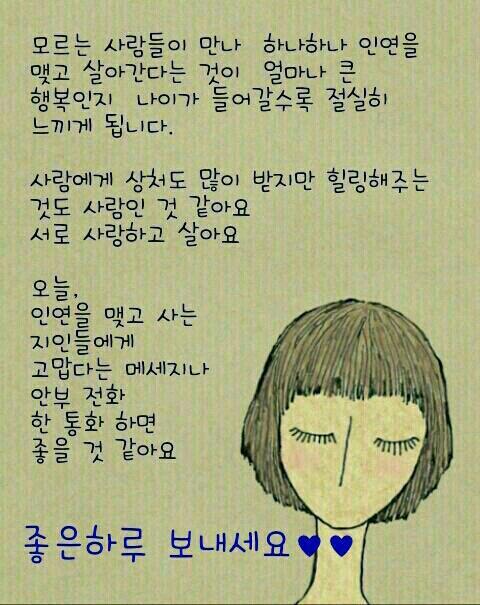 모르는 사람들이 만나 하나하나 인연을
맺고 살아간다는 것이 얼마나 큰
행복인지 나이가 들어갈수록 절실히
느끼게 됩니다.
사람에게 상처도 많이 받지만 힐링해주는
것도 사람인 것 같아요
서로 사랑하고 살아요
오늘,
인연을 맺고 사는
지인들에게
고맙다는 메세지나
안부 전화
한 통화 하면
좋을 것 같아요
좋은하루 보내세요♥♥